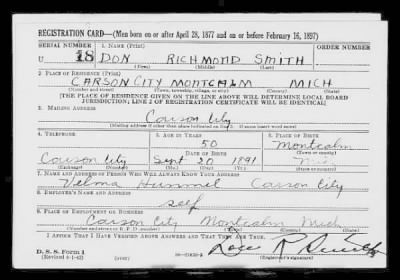 REGISTRATION CARD—(Men born on or after April 28, 1877 and on or before February 16, 1897)
SERIAL NUMBER 1. NAME (Print)
U 18 DON RICHMOND SMITH
(First) (Middle) (Last)
2. PLACE OF RESIDENCE (Print)
CARSON CITY MONTCALM MICH
(Number and street) (Town, township, village, or city) (County) (State)
[THE PLACE OF RESIDENCE GIVEN ON THE LINE ABOVE WILL DETERMINE LOCAL BOARD
JURISDICTION; LINE 2 OF REGISTRATION CERTIFICATE WILL BE IDENTICAL]
3. MAILING ADDRESS
Carson City
(Mailing address if other than place indicated on line 2. If same insert word same)
4. TELEPHONE 5. AGE IN YEARS 6. PLACE OF BIRTH
50 Montcalm
DATE OF BIRTH (Town or county)
Carson City Sept 20 1891 Mich
(Exchange) (Number) (Mo.) (Day) (Yr.) (State or country)
7. NAME AND ADDRESS OF PERSON WHO WILL ALWAYS KNOW YOUR ADDRESS
Velma Hummel Carson City
8. EMPLOYER'S NAME AND ADDRESS
self
9. PLACE OF EMPLOYMENT OR BUSINESS
Carson City Montcalm Mich
(Number and street or R. F. D. number) (Town) (County) (State)
I AFFIRM THAT I HAVE VERIFIED ABOVE ANSWERS AND THAT THEY ARE TRUE.
D. S. S. Form 1
(Revised 4-1-42) (over) (Registrant's signature)